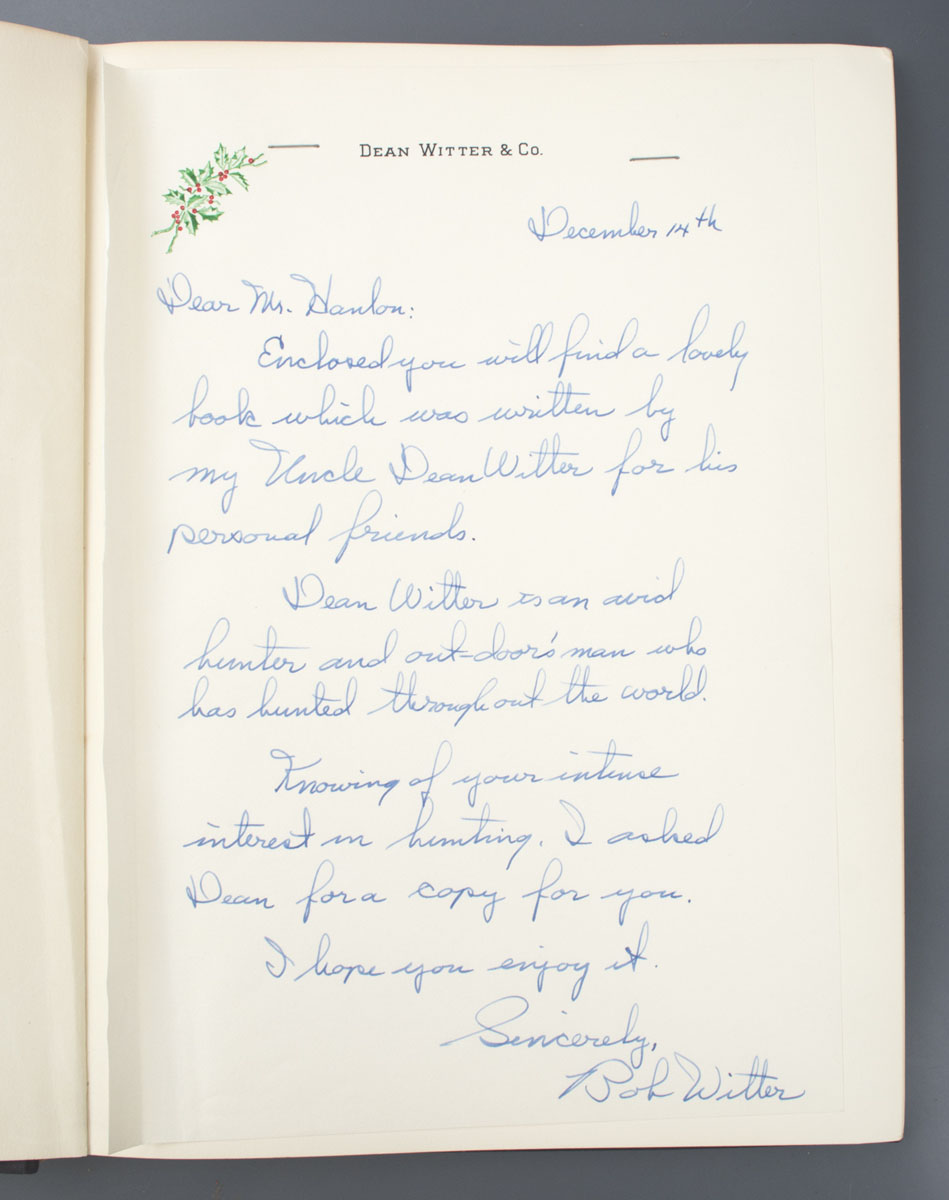 DEAN WITTER & CO.
December 14th
Dear Mr. Hanlon:
Enclosed you will find a lovely
book which was written by
my Uncle Dean Witter for his
personal friends.
Dean Witter is an avid
hunter and out-door's man who
has hunted throughout the world.
Knowing of your intense
interest in hunting, I asked
Dean for a copy for you.
I hope you enjoy it.
Sincerely,
Bob Witter